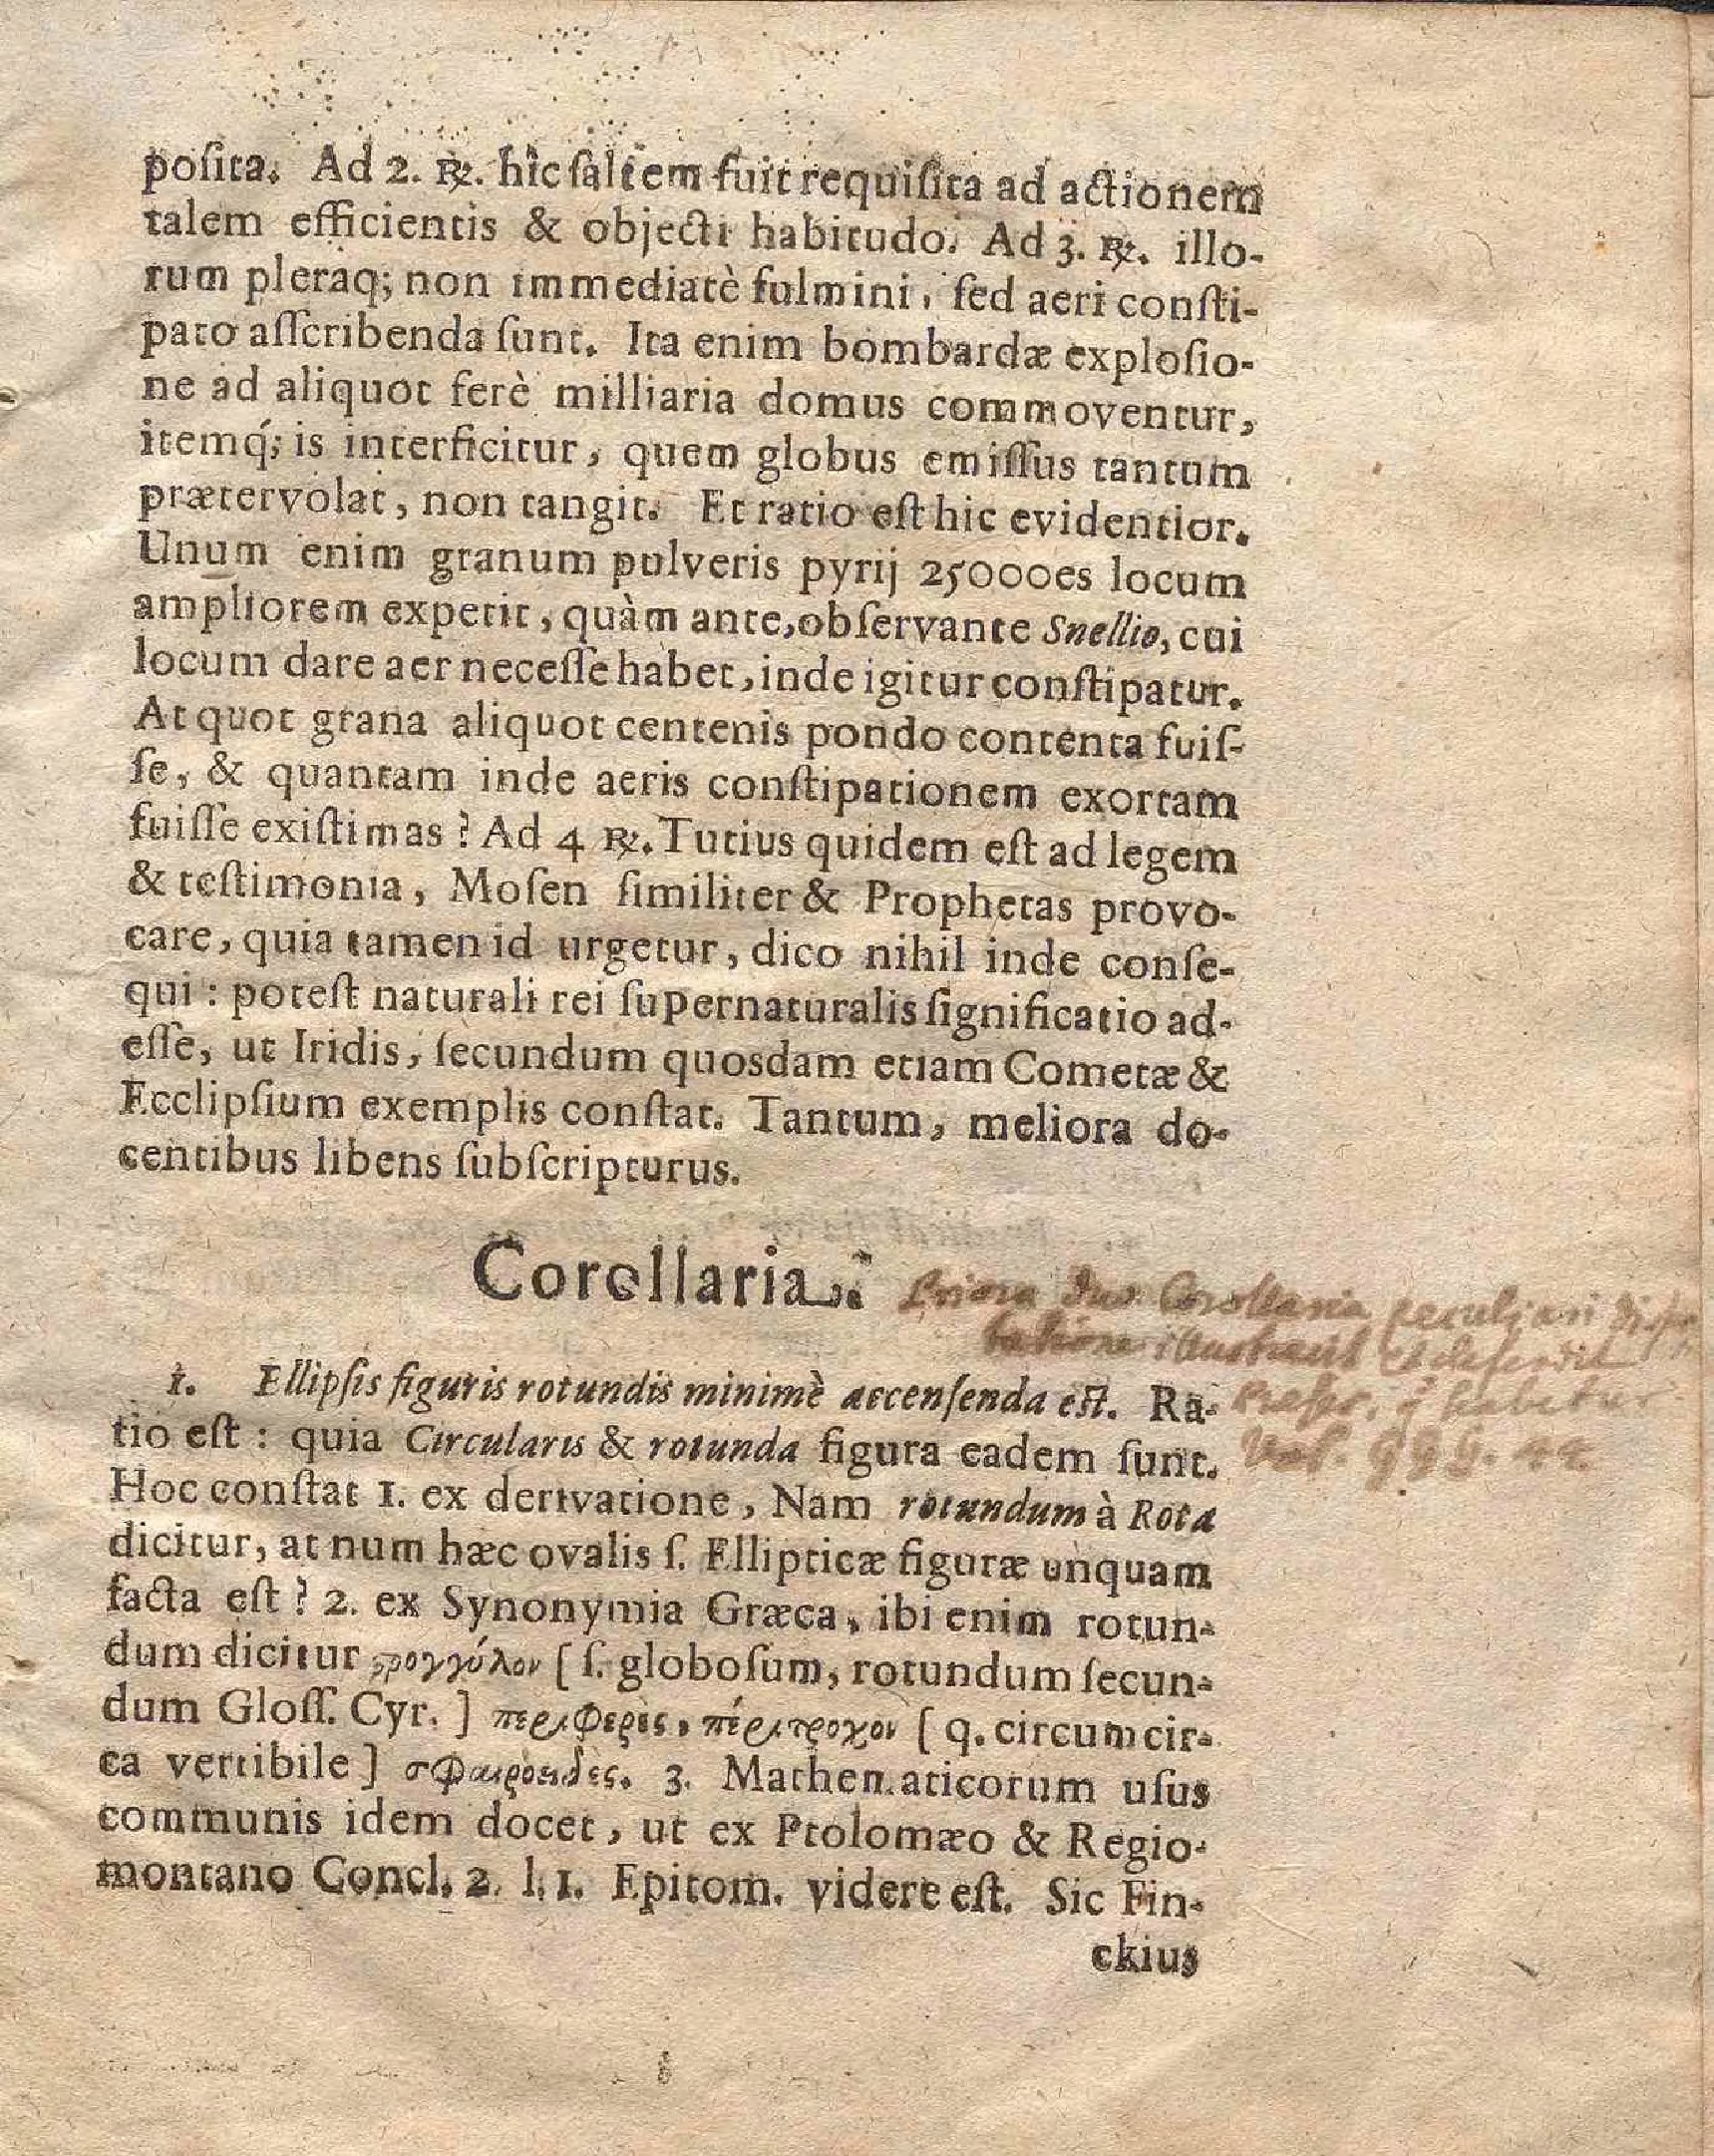 poſita. Ad 2. ℞. hîc ſaltem fuit requiſita ad actionem
talem efficientis & objecti habitudo. Ad 3. ℞. illo-
rum pleraq; non immediatè fulmini, ſed aeri conſti-
pato aſſcribenda ſunt. Ita enim bombardæ exploſio-
ne ad aliquot ferè milliaria domus commoventur,
itemq́; is interficitur, quem globus emiſſus tantum
prætervolat, non tangit. Et ratio eſt hic evidentior.
Unum enim granum pulveris pyrij 25000es locum
ampliorem expetit, quàm ante, obſervante Snellio, cui
locum dare aer neceſſe habet, inde igitur conſtipatur.
At quot grana aliquot centenis pondo contenta fuiſ-
ſe, & quantam inde aeris conſtipationem exortam
fuiſſe exiſtimas? Ad 4 ℞. Tutius quidem eſt ad legem
& teſtimonia, Moſen ſimiliter & Prophetas provo-
care, quia tamen id urgetur, dico nihil inde conſe-
qui: poteſt naturali rei ſupernaturalis ſignificatio ad-
eſſe, ut Iridis, ſecundum quosdam etiam Cometæ &
Ecclipſium exemplis conſtat. Tantum, meliora do-
centibus libens ſubſcripturus.
Corollaria.
Priora duo Corollaria peculiari
illustravit et defendit
1. Ellipſis figuris rotundis minimè accenſenda eſt. Ra-
habetur
tio eſt: quia Circularis & rotunda figura eadem ſunt.
Vol.
Hoc conſtat 1. ex derivatione, Nam rotundum à Rota
dicitur, at num hæc ovalis ſ. Ellipticæ figuræ unquam
facta eſt? 2. ex Synonymia Græca, ibi enim rotun-
dum dicitur ϛρογγύλον [ſ. globoſum, rotundum ſecun-
dum Gloſſ. Cyr.] περιφερὲς, πέριτροχον [q. circumcir-
ca vertibile] σφαιροειδὲς. 3. Mathematicorum uſus
communis idem docet, ut ex Ptolomæo & Regio-
montano Concl. 2. l. 1. Epitom. videre eſt. Sic Fin-
ckius